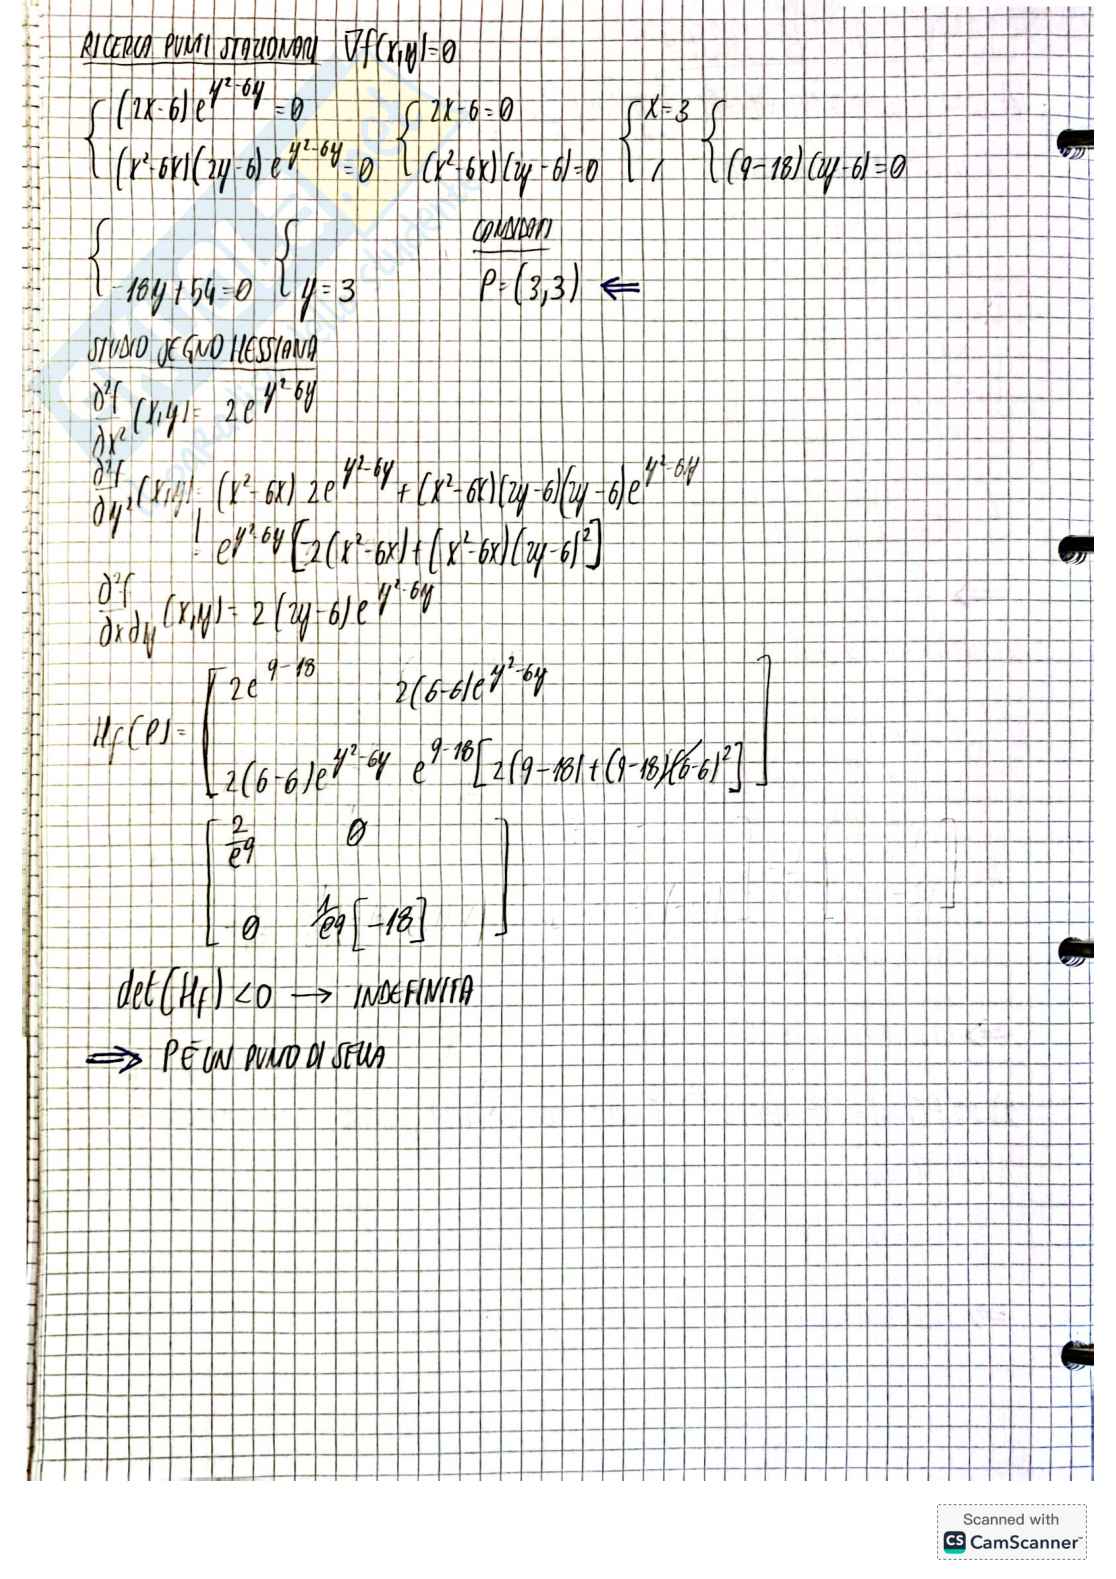 RICERCA PUNTI STAZIONARI ∇f(x,y)=0
{ (2x-6)e^{y²-6y}=0 { 2x-6=0 { x=3 {
(x²-6x)(2y-6)e^{y²-6y}=0 (x²-6x)(2y-6)=0 / (9-18)(2y-6)=0
{ { CANDIDATI
-18y+54=0 y=3 P=(3,3) ⇐
STUDIO SEGNO HESSIANA
∂²f/∂x² (x,y)= 2e^{y²-6y}
∂²f/∂y² (x,y)= (x²-6x) 2e^{y²-6y} + (x²-6x)(2y-6)(2y-6)e^{y²-6y}
= e^{y²-6y} [2(x²-6x)+(x²-6x)(2y-6)²]
∂²f/∂x∂y (x,y)= 2(2y-6)e^{y²-6y}
Hf(P)= [ 2e^{9-18} 2(6-6)e^{y²-6y} ]
2(6-6)e^{y²-6y} e^{9-18}[2(9-18)+(9-18)(6-6)²]
[ 2/e⁹ 0 ]
0 1/e⁹[-18]
det(Hf)<0 → INDEFINITA
⇒ P È UN PUNTO DI SELLA
Scanned with
CS CamScanner